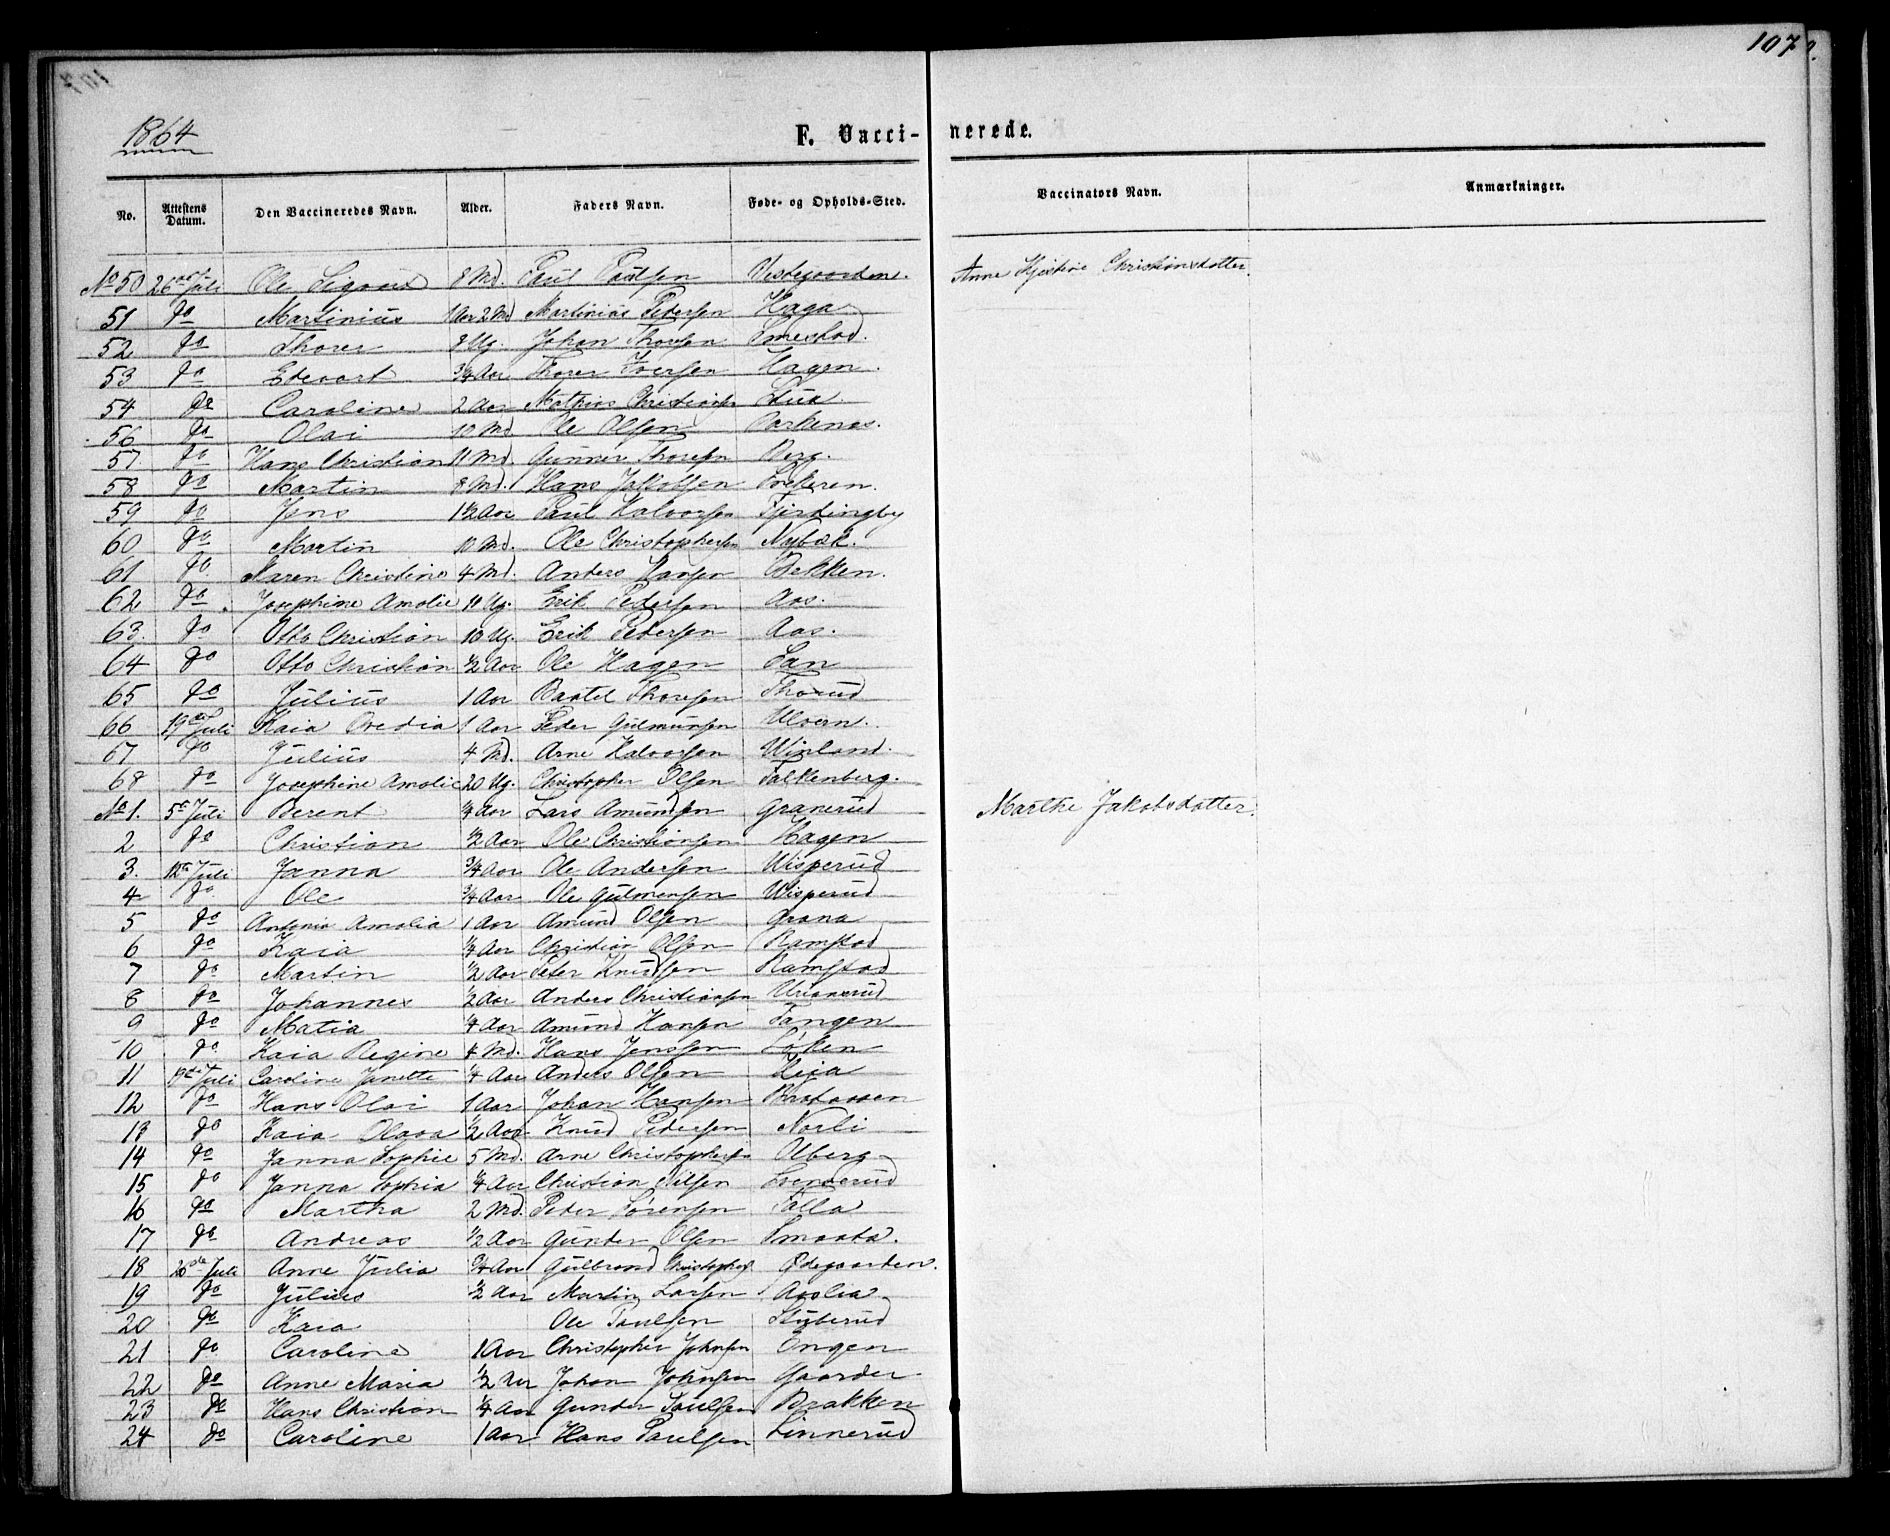 107
1864
F. Vaccinerede.
No. Attestens Datum. Den Vaccineredes Navn. Alder. Faders Navn. Føde- og Opholds-Sted. Vaccinators Navn. Anmærkninger.
No 50 26 Juli Ole Sigvard 8 Md. Paul Paulsen Vestgaarden. Anne Kjestine Christiansdatter
51 do Martinius 1 Aar 2 Md Martinius Pedersen Haga
52 do Thorer 8 Ug. Johan Thoresen Smestad.
53 do Edevart 3/4 Aar Thorer Iversen Hagen.
54 do Caroline 2 Aar Mathias Christiansen Stua
56 do Olai 10 Md Ole Olsen
57 do Hans Christian 11 Md. Gunner Thoresen Berg.
58 do Martin 8 Md. Hans Jakobsen
59 do Jens 1 1/2 Aar Paul Halvorsen Fjerdingby
60 do Martin 10 Md. Ole Christophersen Nybæk.
61 do Karen Christine 4 Md. Anders Hansen Bekken.
62 do Josephine Amalie 10 Ug. Erik Pedersen Aas.
63 do Otto Christian 10 Ug. Erik Pedersen Aas.
64 do Otto Christian 1/2 Aar Ole Hagen
65 do Julius 1 Aar Baatel Thoresen Thorud
66 19de Juli Kaia 1 Aar Peder Gulmunsen Ulvern.
67 do Julius 4 Md. Arne Halvorsen Winland.
68 do Josephine Amalie 20 Ug. Christopher Olsen Falkenberg.
No 1. 5te Juli Berent 1/4 Aar Lars Amundsen Granerud Marthe Jakobsdatter.
2 do Christian 1/2 Aar Ole Christiansen Hagen
3. 12te Juli Janna 3/4 Aar Ole Andersen Wisperud
4 do Ole 3/4 Aar Ole Gulmonsen Wisperud
5 do Antonia Amalia 1 Aar Amund Olsen Grana
6 do Kaia 1/4 Aar Christian Olsen Ramstad
7 do Martin 1/2 Aar Peter Knudsen Ramstad
8 do Johannes 1/2 Aar Anders Christiansen Urianerud
9 do Matia 1/4 Aar Amund Hansen Tangen
10 do Kaia Regine 4 Md. Hans Jenssen Løken
11 19de Juli Caroline Janette 1/4 Aar Anders Olsen Heia
12 do Hans Olai 1 Aar Johan Hansen
13 do Kaia Olava 1/2 Aar Knud Pedersen Norli
14 do Janna Sophie 5 Md. Arne Christophersen Uberg
15 do Janna Sophia 1/4 Aar Christian Nilsen Svenserud
16 do Martha 2 Md. Peder Sørensen Palla
17 do Andreas 1/2 Aar Gunder Olsen Smaata.
18 26de Juli Anne Julia 3/4 Aar Gulbrand Christophers Ødegaarden.
19 do Julius 1/2 Aar Martin Larsen Aaslia
20 do Kaia Ole Paulsen Stuberud
21 do Caroline 1 Aar Christopher Johnsen Engen
22 do Anne Maria 1/2 Aar Johan Johnsen Gaarder
23 do Hans Christian 1/4 Aar Gunder Paulsen Brakken
24 do Caroline 1 Aar Hans Paulsen Linnerud